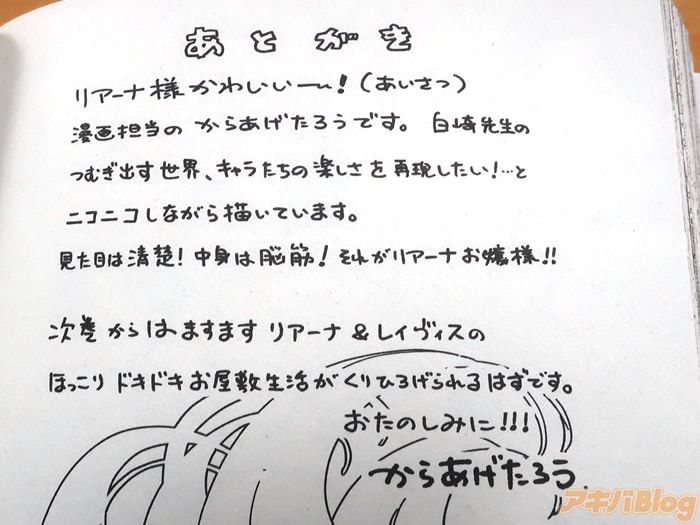 あとがき
リアーナ様かわいい～!(あいさつ)
漫画担当の からあげたろうです。 白崎先生の
つむぎ出す世界、キャラたちの楽しさを再現したい!…と
ニコニコしながら描いています。
見た目は清楚!中身は脳筋!それがリアーナお嬢様!!
次巻からはますます リアーナ&レイヴィスの
ほっこり ドキドキお屋敷生活がくりひろげられるはずです。
おたのしみに!!!
からあげたろう.
アキバBlog